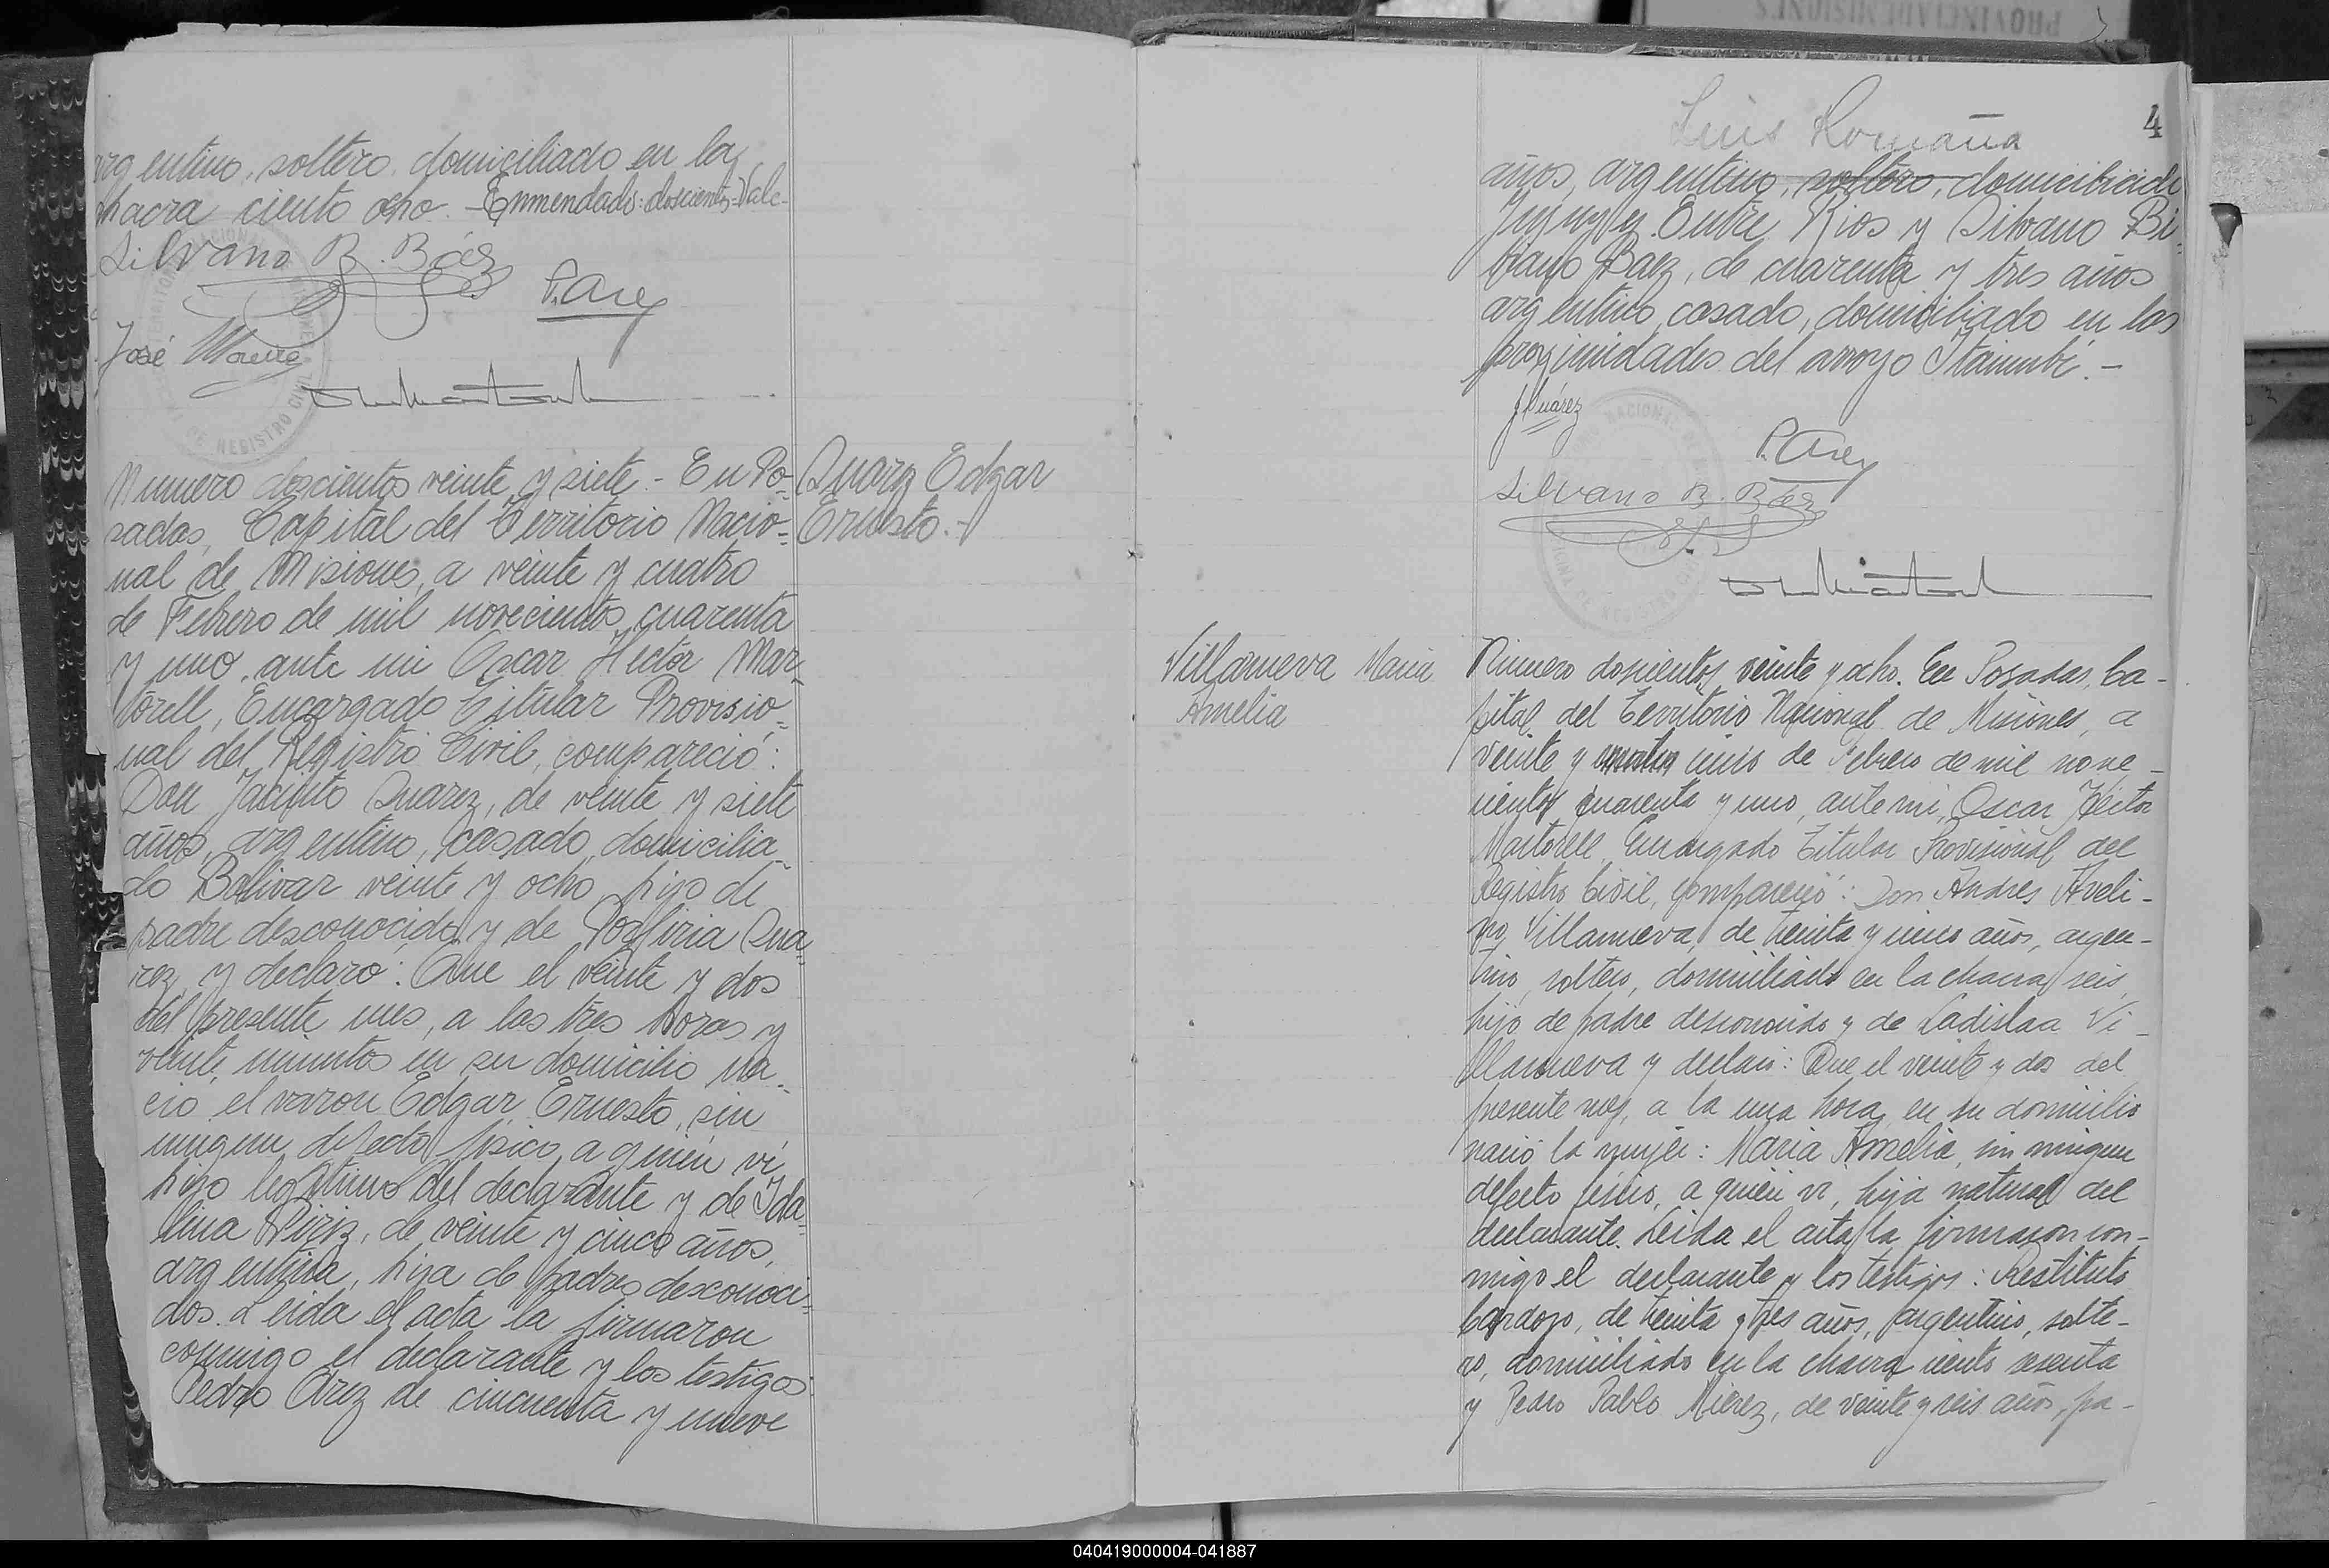 argentino, soltero, domiciliado en la
chacra ciento ocho. - Enmendado: doscientos - Vale -
Silvano B. Báez
P. Arez
José
Numero doscientos veinte y siete. - En Po=
sadas, Capital del Territorio Nacio=
nal de Misiones, a veinte y cuatro
de Febrero de mil novecientos cuarenta
y uno, ante mi Oscar Hector Mar=
torell, Encargado Titular Provisio=
nal del Registro Civil, compareció:
Don Jacinto Suarez, de veinte y siete
años, argentino, casado, domicilia=
do Bolivar veinte y ocho, hijo de
padre desconocido y de Porfiria Sua=
rez, y declaró: Que el veinte y dos
del presente mes, a las tres horas y
veinte minutos en su domicilio na=
ció el varon Edgar Ernesto, sin
ningun defecto fisico a quién vi,
hijo legitimo del declarante y de Ida=
lina Piriz, de veinte y cinco años,
argentina, hija de padres desconoci=
dos. Leida el acta la firmaron
conmigo el declarante y los testigos:
Pedro Arez de cincuenta y nueve
Suarez Edgar
Ernesto. -
Luis Romaña
4
años, argentino, soltero, domiciliado
Jujuy y Entre Rios y Silvano Bi=
biano Baez, de cuarenta y tres años
argentino, casado, domiciliado en las
proximidades del arroyo Itaimbé. -
J Suárez
P. Arez
Silvano B. Báez
Villanueva Maria
Amelia
Numero doscientos veinte y ocho. En Posadas, Ca-
pital del Territorio Nacional de Misiones, a
veinte y cinco de Febrero de mil nove-
cientos cuarenta y uno, ante mi, Oscar Héctor
Martorell Encargado Titular Provisional del
Registro Civil, compareció: Don Andres Aveli-
no Villanueva, de treinta y cinco años, argen-
tino, soltero, domiciliado en la chacra seis,
hijo de padre desconocido y de Ladislaa Vi-
llanueva y declaró: Que el veinte y dos del
presente mes, a la una hora, en su domicilio
nació la mujer: Maria Amelia, sin ningun
defecto fisico, a quién vi, hija natural del
declarante. Leida el acta la firmaron con-
migo el declarante y los testigos: Restituto
Cardozo, de treinta y tres años, argentino, solte-
ro, domiciliado en la chacra ciento sesenta
y Pedro Pablo Mierez, de veinte y seis años, pa-
040419000004-041887